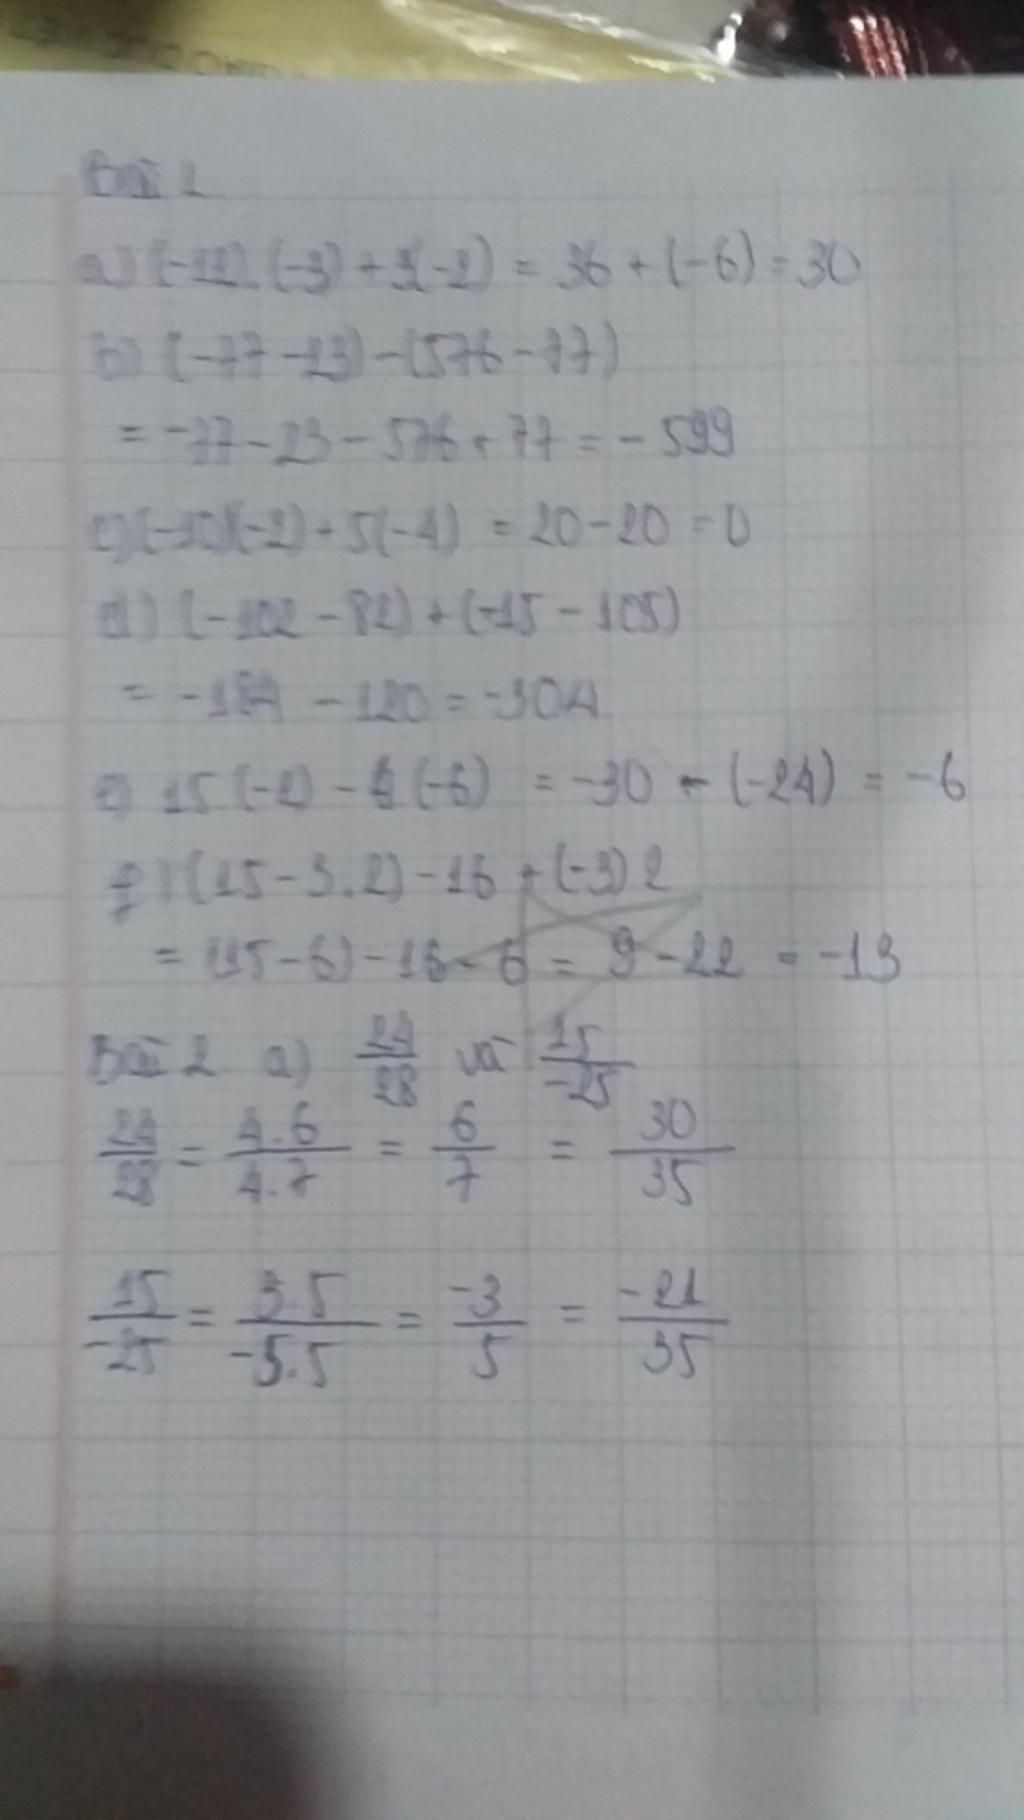 Bài 1
a) (-12).(-3)+3(-2) = 36 + (-6) = 30
b) (-77-23)-(576-77)
= -77-23-576+77 = -599
c) (-10)(-2)+5(-4) = 20-20 = 0
d) (-102-82)+(-15-105)
= -184-120 = -304
e) 15.(-2)-4(-6) = -30-(-24) = -6
f) (15-3.2)-16+(-3)2
= (15-6)-16-6 = 9-22 = -13
Bài 2 a) 24/28 và 15/-25
24/28 = 4.6/4.7 = 6/7 = 30/35
15/-25 = 3.5/-5.5 = -3/5 = -21/35